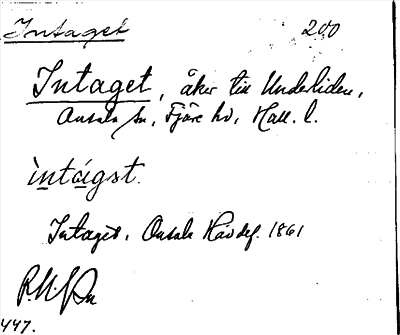 Intaget 200
Intaget, åker till Underliden,
Onsala sn, Fjäre hd, Hall. l.
ìntágst.
Intaget. Onsala Häv def. 1861
447.